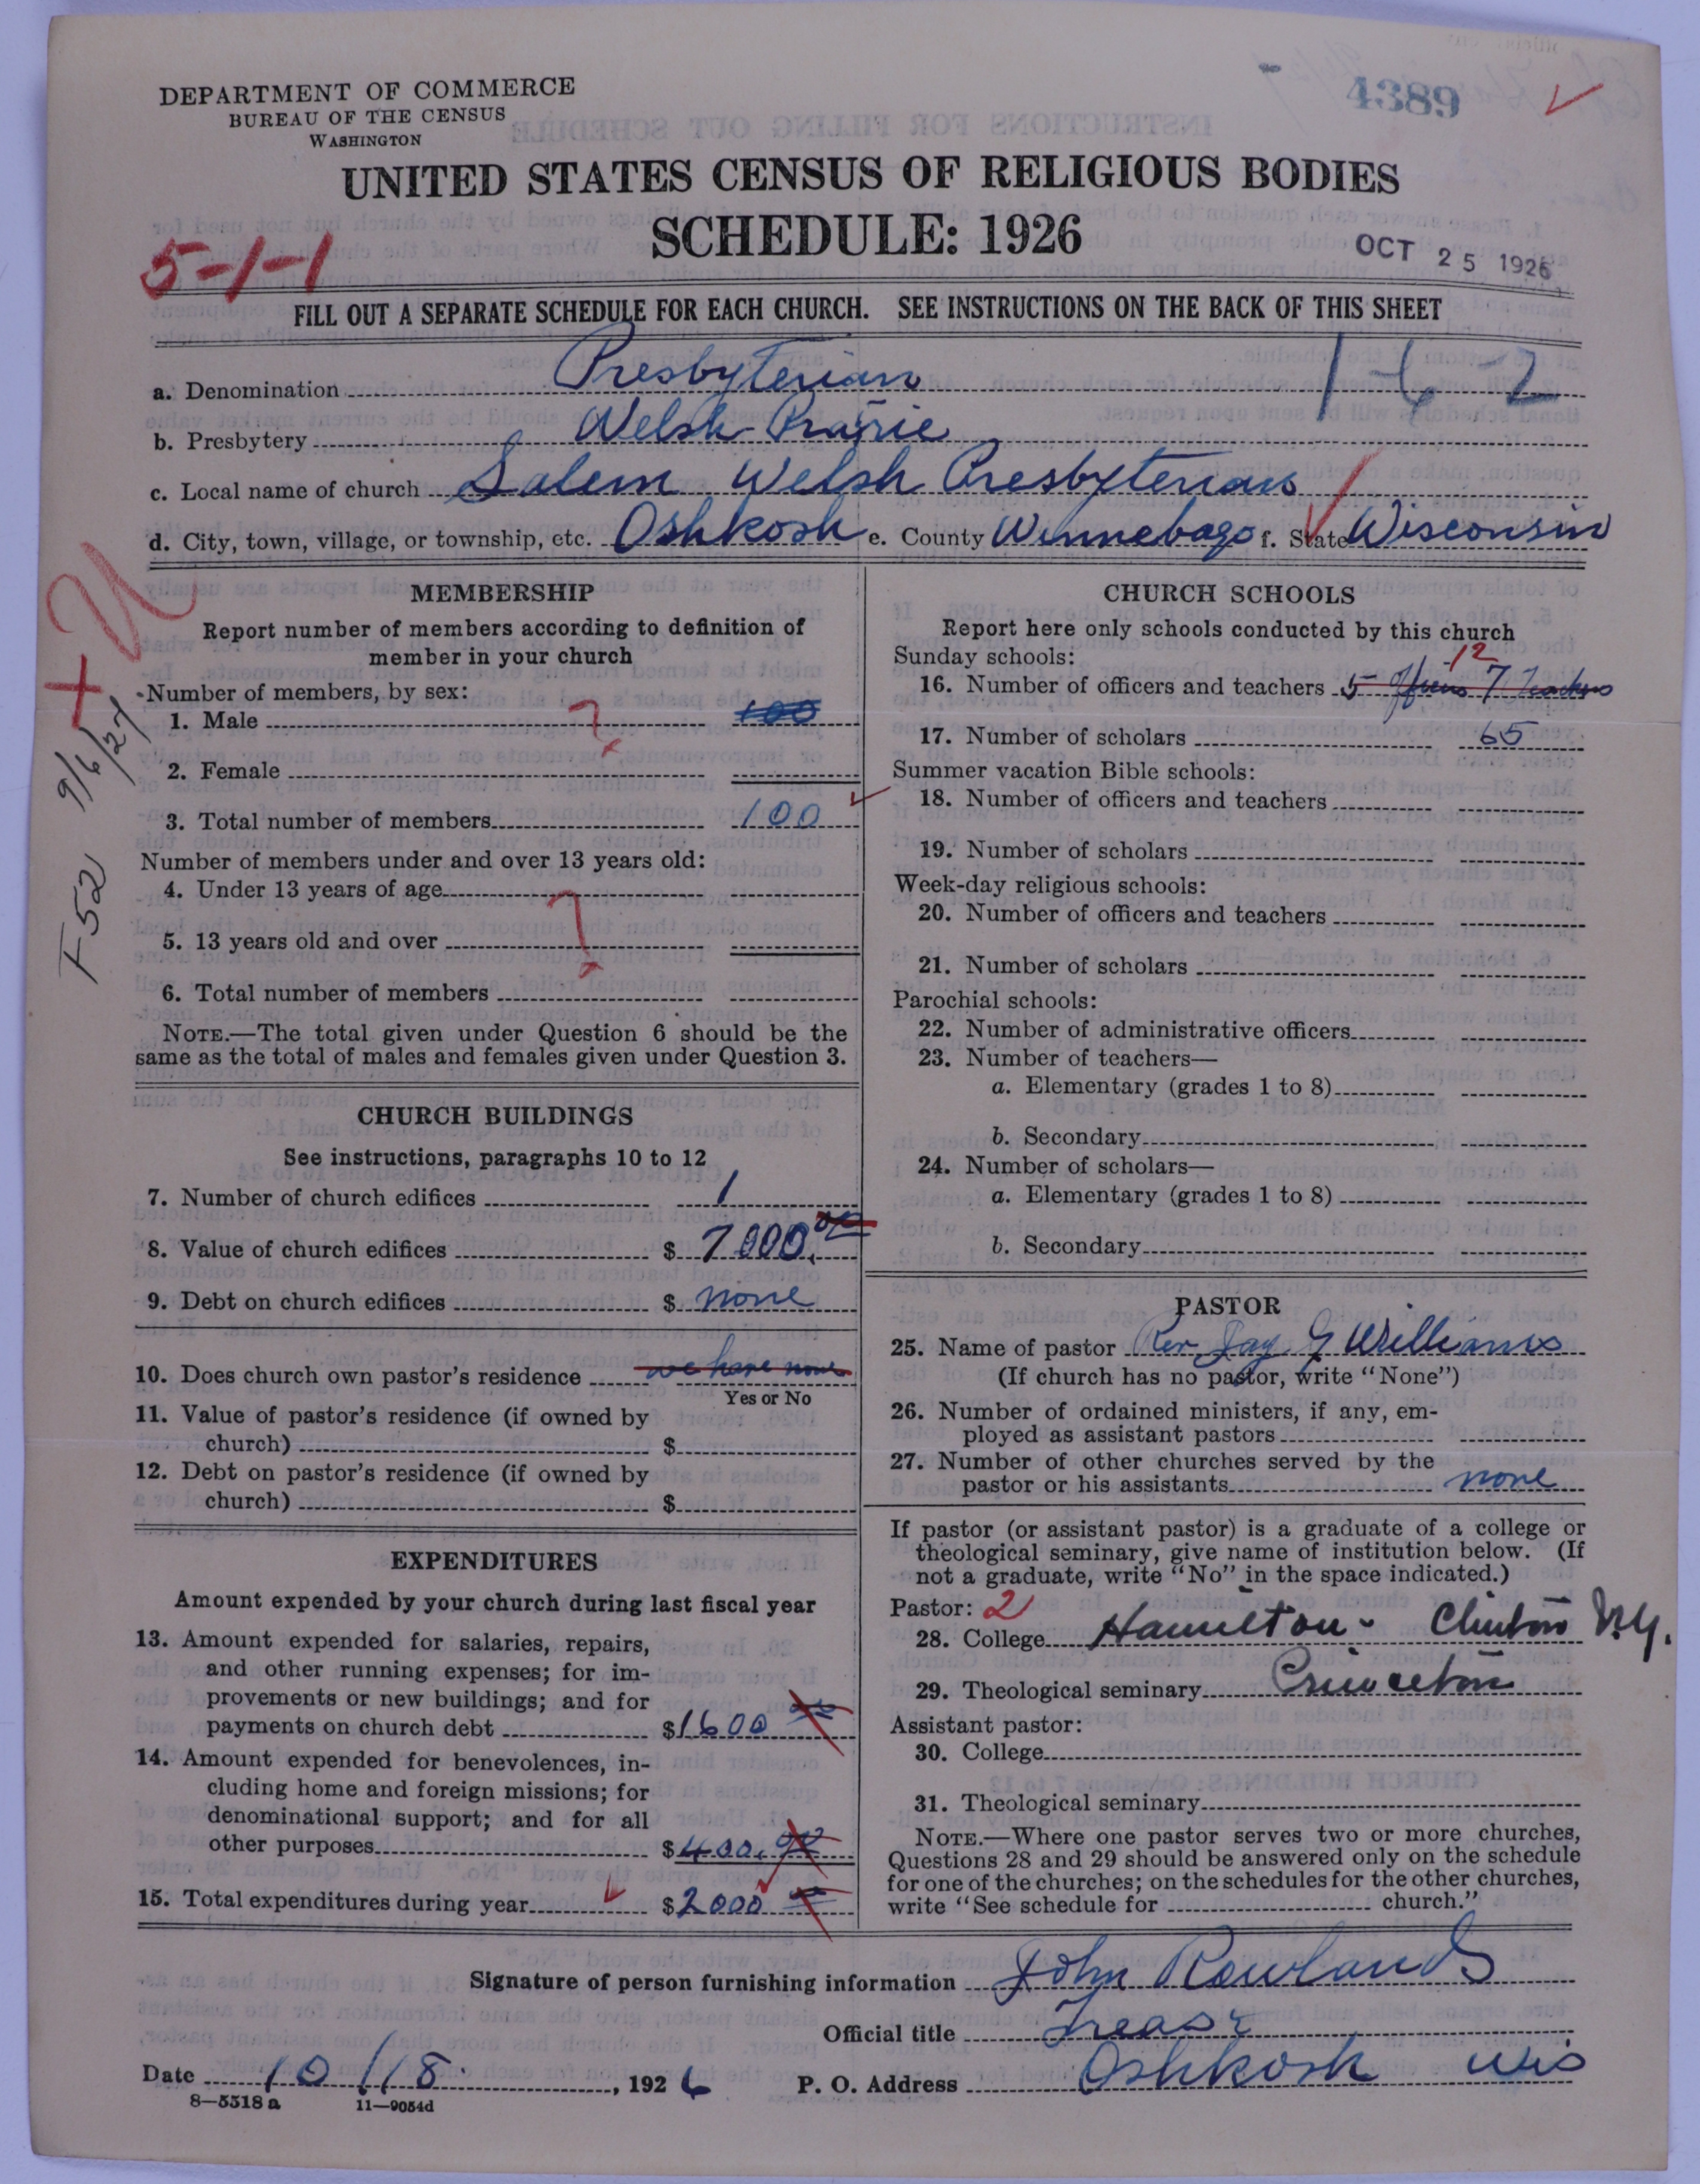 4389
DEPARTMENT OF COMMERCE
BUREAU OF THE CENSUS
WASHINGTON
UNITED STATES CENSUS OF RELIGIOUS BODIES
SCHEDULE: 1926
OCT 25 1926
5-1-1
FILL OUT A SEPARATE SCHEDULE FOR EACH CHURCH. SEE INSTRUCTIONS ON THE BACK OF THIS SHEET
a. Denomination Presbyterian
b. Presbytery Welsh Prairie
c. Local name of church Salem Welsh Presbyterian
d. City, town, village, or township, etc. Oshkosh e. County Winnebago f. State Wisconsin
9/6/27
F52
MEMBERSHIP
Report number of members according to definition of
member in your church
Number of members, by sex:
1. Male ? 100
2. Female
3. Total number of members 100
Number of members under and over 13 years old:
4. Under 13 years of age ?
5. 13 years old and over
6. Total number of members
NOTE.—The total given under Question 6 should be the
same as the total of males and females given under Question 3.
CHURCH BUILDINGS
See instructions, paragraphs 10 to 12
7. Number of church edifices 1
8. Value of church edifices $ 7000.00
9. Debt on church edifices $ none
10. Does church own pastor's residence we have none
Yes or No
11. Value of pastor's residence (if owned by
church) $
12. Debt on pastor's residence (if owned by
church) $
EXPENDITURES
Amount expended by your church during last fiscal year
13. Amount expended for salaries, repairs,
and other running expenses; for im-
provements or new buildings; and for
payments on church debt $1600 00
14. Amount expended for benevolences, in-
cluding home and foreign missions; for
denominational support; and for all
other purposes $400.00
15. Total expenditures during year $2000 00
CHURCH SCHOOLS
Report here only schools conducted by this church
Sunday schools:
12
16. Number of officers and teachers 5 officers 7 Teachers
17. Number of scholars 65
Summer vacation Bible schools:
18. Number of officers and teachers
19. Number of scholars
Week-day religious schools:
20. Number of officers and teachers
21. Number of scholars
Parochial schools:
22. Number of administrative officers
23. Number of teachers—
a. Elementary (grades 1 to 8)
b. Secondary
24. Number of scholars—
a. Elementary (grades 1 to 8)
b. Secondary
PASTOR
25. Name of pastor Rev Jay G Williams
(If church has no pastor, write "None")
26. Number of ordained ministers, if any, em-
ployed as assistant pastors
27. Number of other churches served by the
pastor or his assistants none
If pastor (or assistant pastor) is a graduate of a college or
theological seminary, give name of institution below. (If
not a graduate, write "No" in the space indicated.)
Pastor: 2
28. College Hamilton - Clinton N.Y.
29. Theological seminary Princeton
Assistant pastor:
30. College
31. Theological seminary
NOTE.—Where one pastor serves two or more churches,
Questions 28 and 29 should be answered only on the schedule
for one of the churches; on the schedules for the other churches,
write "See schedule for church."
Signature of person furnishing information John Rowlands
Official title Treas
Date 10/18, 1926 P. O. Address Oshkosh Wis
8—5518 a 11—9054d